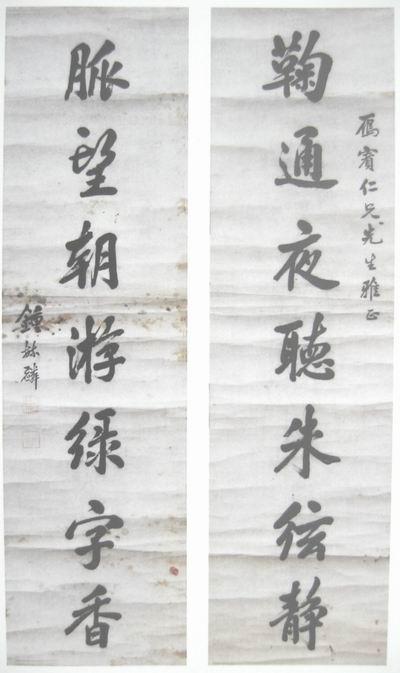 鴈賓仁兄先生雅正
鞠通夜聽朱弦静
脈望朝游緑字香
鍾毓麟